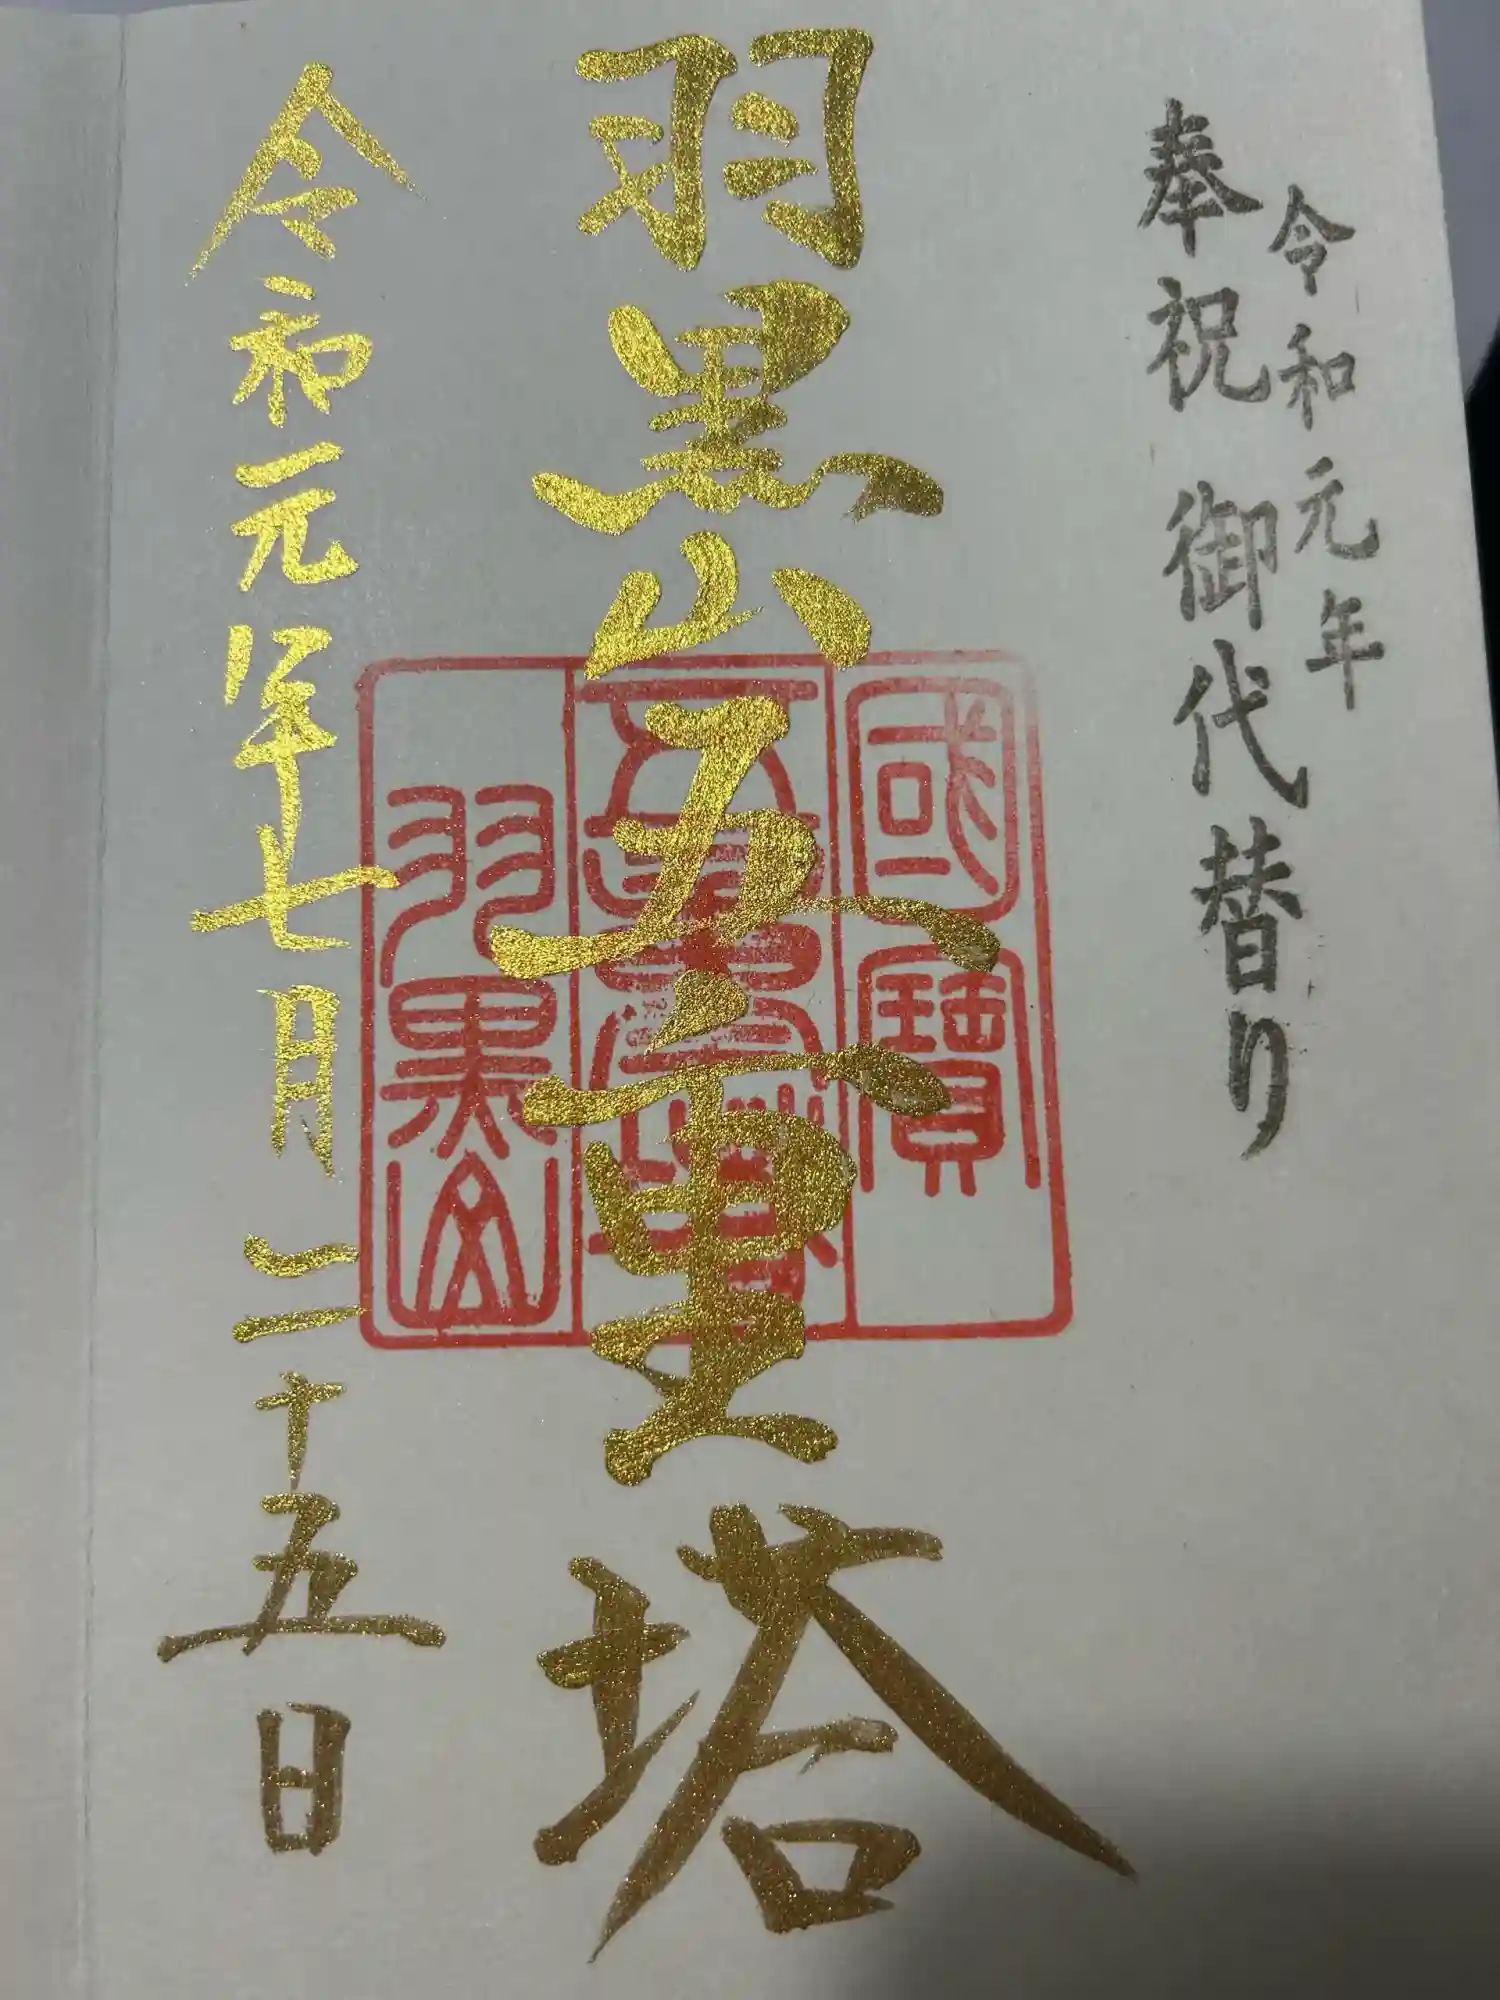 令和元年
奉祝 御代替り
羽黒山五重塔
國寶
羽黒山
令和元年七月二十五日